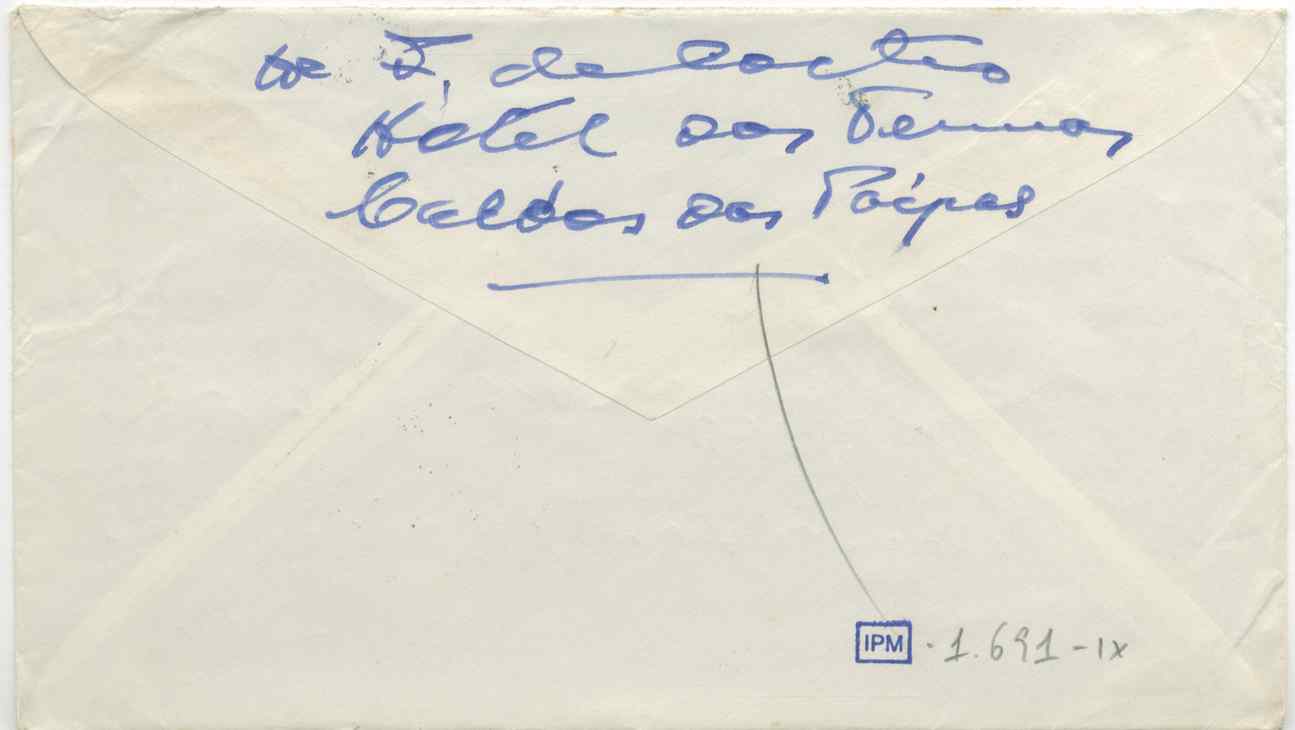 de F. de Castro
Hotel das Termas
Caldas das Taipas
IPM . 1.691-IX